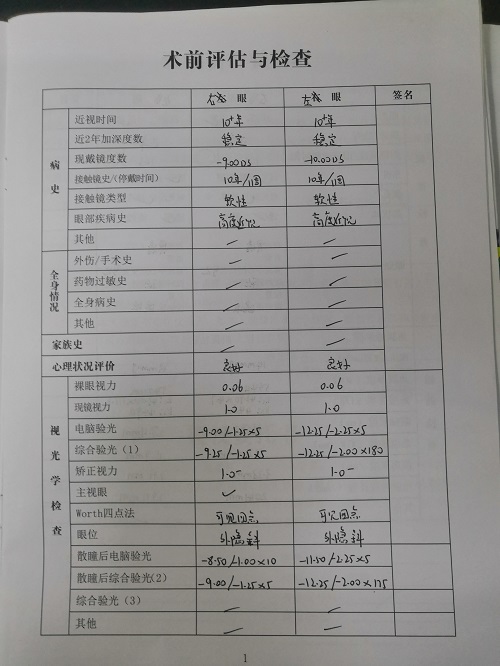 术前评估与检查
右 眼 左 眼 签名
病史
近视时间 10+年 10+年
近2年加深度数 稳定 稳定
现戴镜度数 -9.00DS -10.00DS
接触镜史/(停戴时间) 10年/1周 10年/1周
接触镜类型 软性 软性
眼部疾病史 高度近视 高度近视
其他 — —
全身情况
外伤/手术史 — —
药物过敏史 — —
全身病史 — —
其他 — —
家族史 — —
心理状况评价 良好 良好
视光学检查
裸眼视力 0.06 0.06
现镜视力 1.0 1.0
电脑验光 -9.00/-1.25×5 -12.25/-2.25×5
综合验光(1) -9.25/-1.25×5 -12.25/-2.00×180
矫正视力 1.0- 1.0-
主视眼 ✓
Worth四点法 可见四点 可见四点
眼位 外隐斜 外隐斜
散瞳后电脑验光 -8.50/-1.00×10 -11.50/-2.25×5
散瞳后综合验光(2) -9.00/-1.25×5 -12.25/-2.00×175
综合验光(3) — —
其他 — —
1